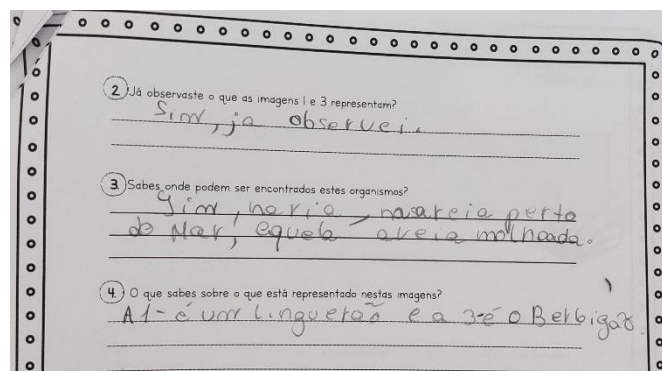 2. Já observaste o que as imagens 1 e 3 representam?
Sim, ja observei.
3. Sabes onde podem ser encontrados estes organismos?
Sim, na ria, na areia perto
do Mar, equela areia molhada.
4. O que sabes sobre o que está representado nestas imagens?
A 1- é um linguerão e a 3-é o Berbigão